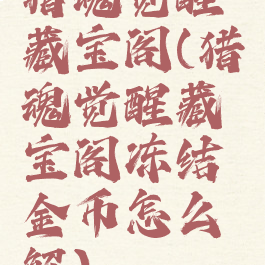 猎魂觉醒
藏宝阁(猎
魂觉醒藏
宝阁冻结
金币怎么
解)